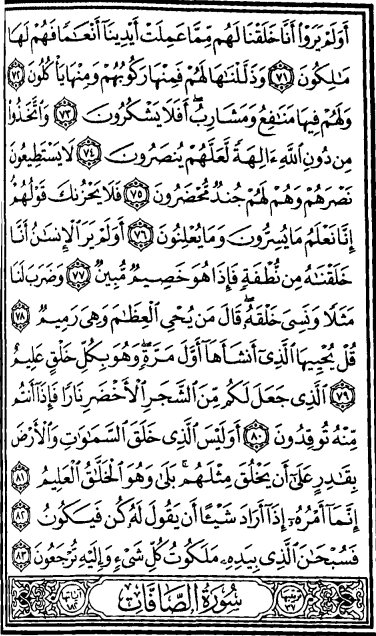 أَوَلَمْ يَرَوْا۟ أَنَّا خَلَقْنَا لَهُم مِّمَّا عَمِلَتْ أَيْدِينَآ أَنْعَٰمًا فَهُمْ لَهَا
مَٰلِكُونَ ٧١ وَذَلَّلْنَٰهَا لَهُمْ فَمِنْهَا رَكُوبُهُمْ وَمِنْهَا يَأْكُلُونَ ٧٢
وَلَهُمْ فِيهَا مَنَٰفِعُ وَمَشَارِبُ ۖ أَفَلَا يَشْكُرُونَ ٧٣ وَٱتَّخَذُوا۟
مِن دُونِ ٱللَّهِ ءَالِهَةً لَّعَلَّهُمْ يُنصَرُونَ ٧٤ لَا يَسْتَطِيعُونَ
نَصْرَهُمْ وَهُمْ لَهُمْ جُندٌ مُّحْضَرُونَ ٧٥ فَلَا يَحْزُنكَ قَوْلُهُمْ ۘ
إِنَّا نَعْلَمُ مَا يُسِرُّونَ وَمَا يُعْلِنُونَ ٧٦ أَوَلَمْ يَرَ ٱلْإِنسَٰنُ أَنَّا
خَلَقْنَٰهُ مِن نُّطْفَةٍ فَإِذَا هُوَ خَصِيمٌ مُّبِينٌ ٧٧ وَضَرَبَ لَنَا
مَثَلًا وَنَسِىَ خَلْقَهُۥ ۖ قَالَ مَن يُحْىِ ٱلْعِظَٰمَ وَهِىَ رَمِيمٌ ٧٨
قُلْ يُحْيِيهَا ٱلَّذِىٓ أَنشَأَهَآ أَوَّلَ مَرَّةٍ ۖ وَهُوَ بِكُلِّ خَلْقٍ عَلِيمٌ
٧٩ ٱلَّذِى جَعَلَ لَكُم مِّنَ ٱلشَّجَرِ ٱلْأَخْضَرِ نَارًا فَإِذَآ أَنتُم
مِّنْهُ تُوقِدُونَ ٨٠ أَوَلَيْسَ ٱلَّذِى خَلَقَ ٱلسَّمَٰوَٰتِ وَٱلْأَرْضَ
بِقَٰدِرٍ عَلَىٰٓ أَن يَخْلُقَ مِثْلَهُم ۚ بَلَىٰ وَهُوَ ٱلْخَلَّٰقُ ٱلْعَلِيمُ ٨١
إِنَّمَآ أَمْرُهُۥٓ إِذَآ أَرَادَ شَيْـًٔا أَن يَقُولَ لَهُۥ كُن فَيَكُونُ ٨٢
فَسُبْحَٰنَ ٱلَّذِى بِيَدِهِۦ مَلَكُوتُ كُلِّ شَىْءٍ وَإِلَيْهِ تُرْجَعُونَ ٨٣
سُورَةُ ٱلصَّافَّاتِ